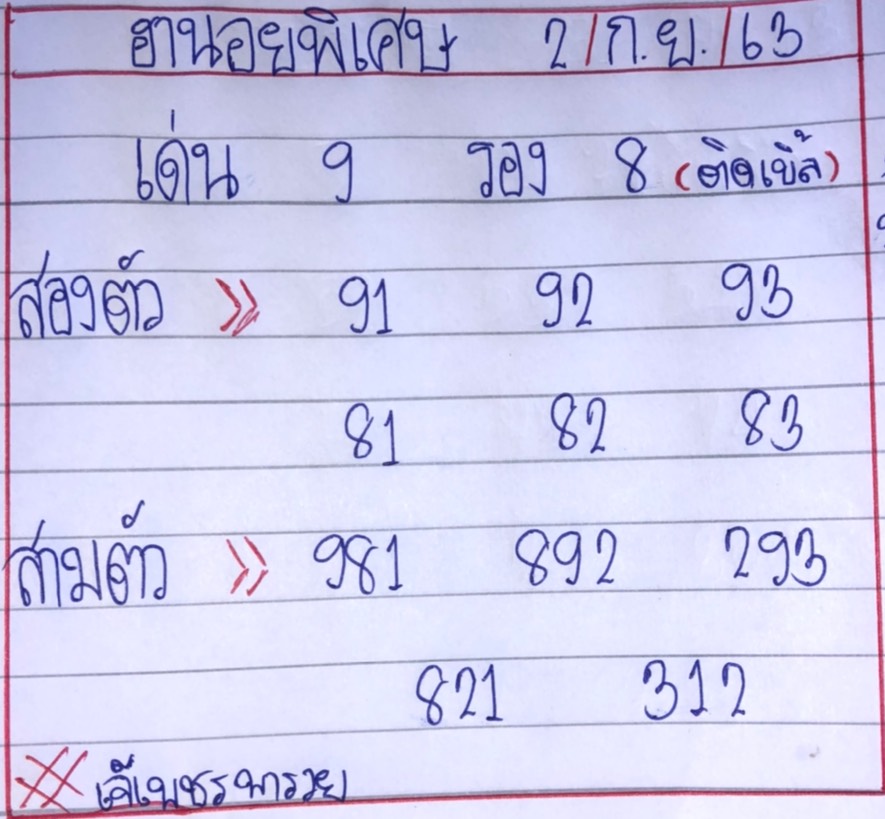 ฮานอยพิเศษ 2/ก.ย./63
เด่น 9 รอง 8 (ติดเบิ้ล)
สองตัว >> 91 92 93
81 82 83
สามตัว >> 981 892 293
821 312
※ เจ๊เพชรพารวย